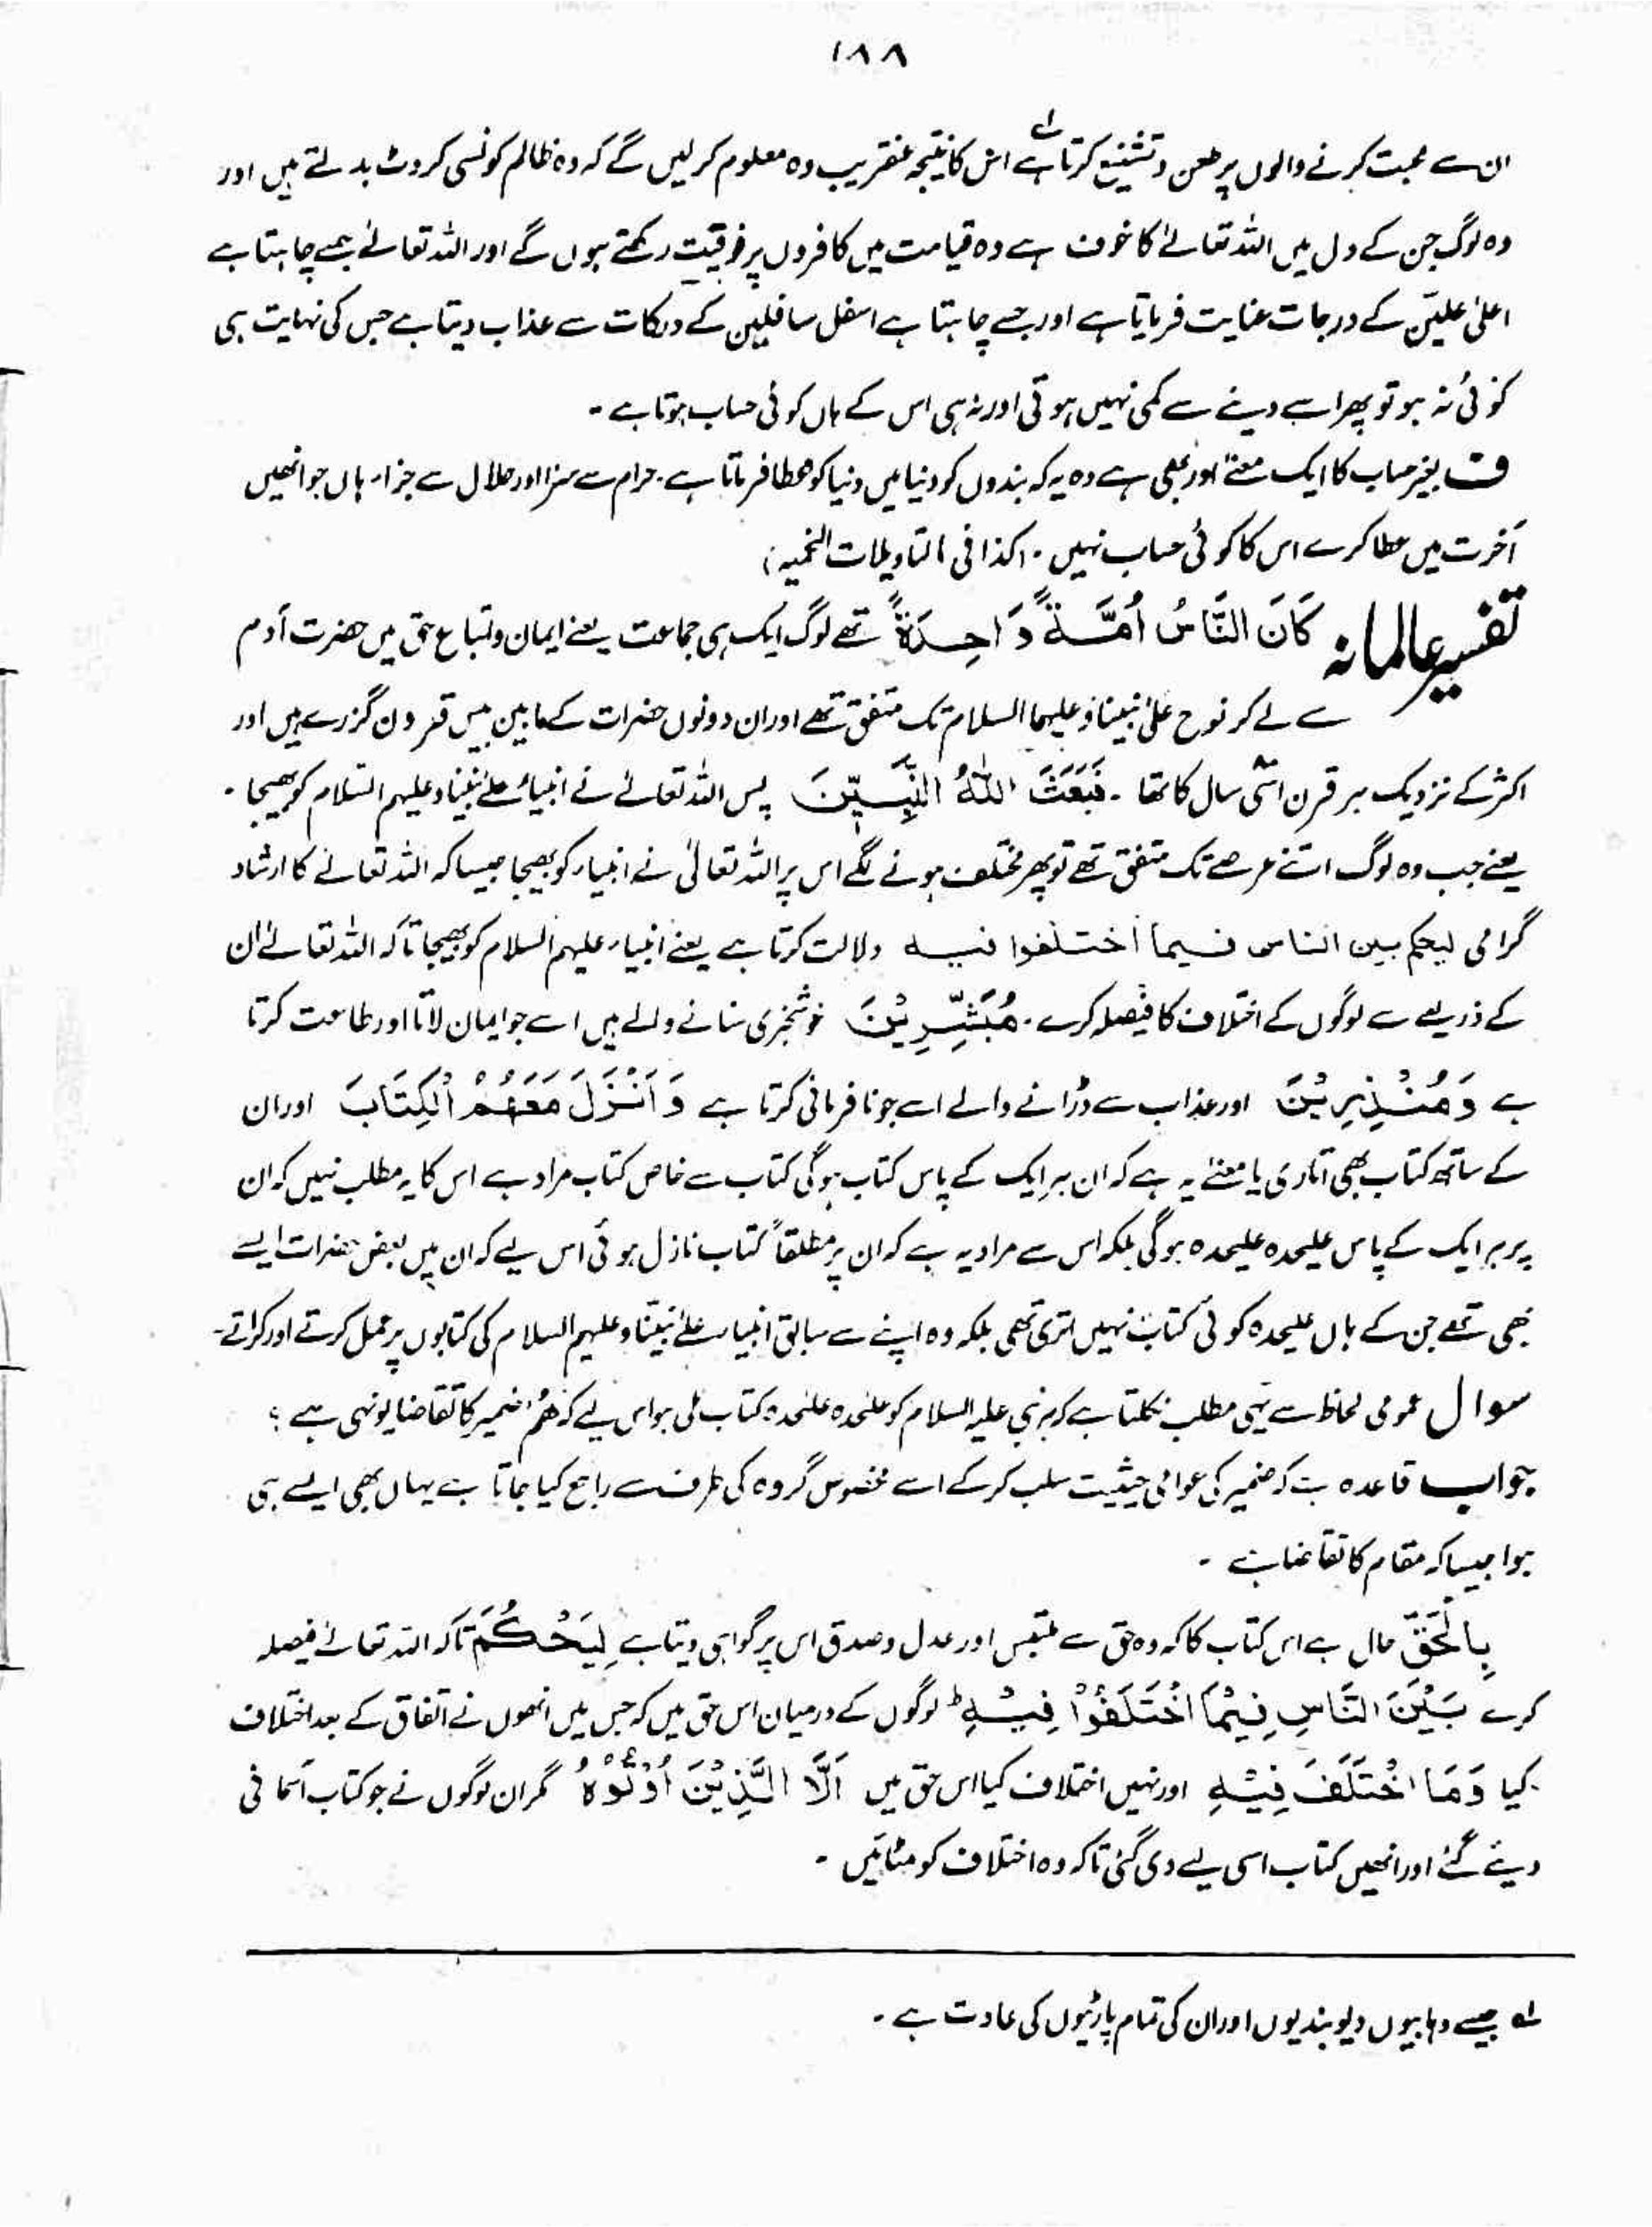 ۱۸۸
ان سے محبت کرنے والوں پر طعن و تشنیع کرتا ہے۱؎ اس کا نتیجہ عنقریب وہ معلوم کرلیں گے کہ وہ ظالم کونسی کروٹ بدلتے ہیں اور
وہ لوگ جن کے دل میں اللہ تعالےٰ کا خوف ہے وہ قیامت میں کافروں پر فوقیت رکھتے ہوں گے اور اللہ تعالےٰ جسے چاہتا ہے
اعلیٰ علیّن کے درجات عنایت فرماتا ہے اور جسے چاہتا ہے اسفل سافلین کے درکات سے عذاب دیتا ہے جس کی نہایت ہی
کوئی نہ ہو تو پھر اسے دینے سے کمی نہیں ہوتی اور نہ ہی اس کے ہاں کوئی حساب ہوتا ہے ۔
ف بغیر حساب کا ایک معنےٰ اور بھی ہے وہ یہ کہ بندوں کو دنیا میں دنیا کو عطا فرماتا ہے ۔ حرام سے سزا اور حلال سے جزا ۔ ہاں جو انھیں
آخرت میں عطا کرے اس کا کوئی حساب نہیں ۔ (کذا فی التاویلات النجمیہ)
تفسیر عالمانہ كَانَ النَّاسُ اُمَّةً وَّاحِدَةً تھے لوگ ایک ہی جماعت یعنے ایمان و اتباع حق میں حضرت آدم
سے لے کر نوح علیٰ نبینا و علیہما السلام تک متفق تھے اور ان دونوں حضرات کے مابین بیس قرون گزرے ہیں اور
اکثر کے نزدیک ہر قرن اسّی سال کا تھا ۔ فَبَعَثَ اللّٰهُ النَّبِيّٖنَ پس اللہ تعالےٰ نے انبیاء علےٰ نبینا و علیہم السلام کو بھیجا ۔
یعنے جب وہ لوگ اتنے عرصے تک متفق تھے تو پھر مختلف ہونے لگے اس پر اللہ تعالیٰ نے انبیاء کو بھیجا جیسا کہ اللہ تعالےٰ کا ارشاد
گرامی لیحکم بین الناس فیما اختلفوا فیه دلالت کرتا ہے یعنے انبیاء علیہم السلام کو بھیجا تاکہ اللہ تعالےٰ ان
کے ذریعے سے لوگوں کے اختلاف کا فیصلہ کرے ۔ مُبَشِّرِيْنَ خوشخبری سنانے والے ہیں اسے جو ایمان لاتا اور طاعت کرتا
ہے وَمُنْذِرِيْنَ اور عذاب سے ڈرانے والے اسے جو نافرمانی کرتا ہے وَاَنْزَلَ مَعَهُمُ الْكِتَابَ اور ان
کے ساتھ کتاب بھی اتاری یا معنےٰ یہ ہے کہ ان ہر ایک کے پاس کتاب ہوگی کتاب سے خاص کتاب مراد ہے اس کا یہ مطلب نہیں کہ ان
پر ہر ایک کے پاس علیحدہ علیحدہ ہوگی بلکہ اس سے مراد یہ ہے کہ ان پر مطلقاً کتاب نازل ہوئی اس لیے کہ ان میں بعض حضرات ایسے
بھی تھے جن کے ہاں علیحدہ کوئی کتاب نہیں اتری تھی بلکہ وہ اپنے سے سابق انبیاء علےٰ نبینا و علیہم السلام کی کتابوں پر عمل کرتے اور کراتے ۔
سوال عمومی لحاظ سے یہی مطلب نکلتا ہے کہ ہر نبی علیہ السلام کو علٰحدہ علٰحدہ کتاب ملی ہو اس لیے کہ ھُم ضمیر کا تقاضا یونہی ہے ؟
جواب قاعدہ ہے کہ ضمیر کی عوامی حیثیت سلب کرکے اسے مخصوص گروہ کی طرف سے راجع کیا جاتا ہے یہاں بھی ایسے ہی
ہوا جیسا کہ مقام کا تقاضا ہے ۔
بِالْحَقِّ حال ہے اس کتاب کا کہ وہ حق سے متلبس اور عدل و صدق اس پر گواہی دیتا ہے لِيَحْكُمَ تاکہ اللہ تعالےٰ فیصلہ
کرے بَيْنَ النَّاسِ فِيْمَا اخْتَلَفُوْا فِيْهِ ؕ لوگوں کے درمیان اس حق میں کہ جس میں انھوں نے اتفاق کے بعد اختلاف
کیا وَمَا اخْتَلَفَ فِيْهِ اور نہیں اختلاف کیا اس حق میں اَلَّا الَّذِيْنَ اُوْتُوْهُ مگر ان لوگوں نے جو کتاب آسمانی
دیئے گئے اور انھیں کتاب اسی لیے دی گئی تاکہ وہ اختلاف کو مٹائیں ۔
۱؎ جیسے وہابیوں دیوبندیوں اور ان کی تمام پارٹیوں کی عادت ہے ۔